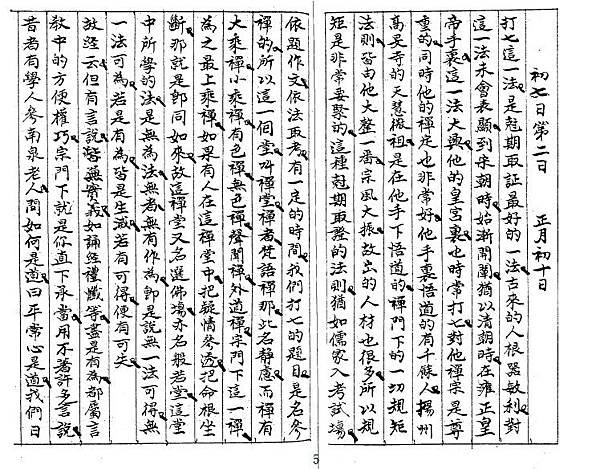 初七日第二日　正月初十日
打七這一法是尅期取証最好的一法古來的人根器敏利對
這一法未曾表顯到宋朝時始漸開闡猶以清朝時在雍正皇
帝手裏這一法大興他的皇宮裏也時常打七對他禪宗是尊
重的同時他的禪定也非常好他手裏悟道的有千餘人揚州
高旻寺的天慧徹祖是在他手下悟道的禪門下的一切規矩
法則皆由他大整一番宗風大振故出的人材也很多所以規
矩是非常要緊的這種尅期取證的法則猶如儒家入考試場
依題作文依法取考有一定的時間我們打七的題目是名參
禪的所以這一個堂叫禪堂禪者梵語禪那此名靜慮而禪有
大乘禪小乘禪有色禪無色禪聲聞禪外道禪宗門下這一禪
為之最上乘禪如果有人在這禪堂中把疑情參透把命根坐
斷那就是即同如來故這禪堂又名選佛場亦名般若堂這堂
中所學的法是無為法無者無有作為即是說無一法可得無
一法可為若是有為皆是生滅若有可得便有可失
故經云但有言說皆無實義如誦經禮懺等盡是有為都屬言
教中的方便權巧宗門下就是你直下承當用不著許多言說
昔者有學人參南泉老人問如何是道曰平常心是道我們日
5